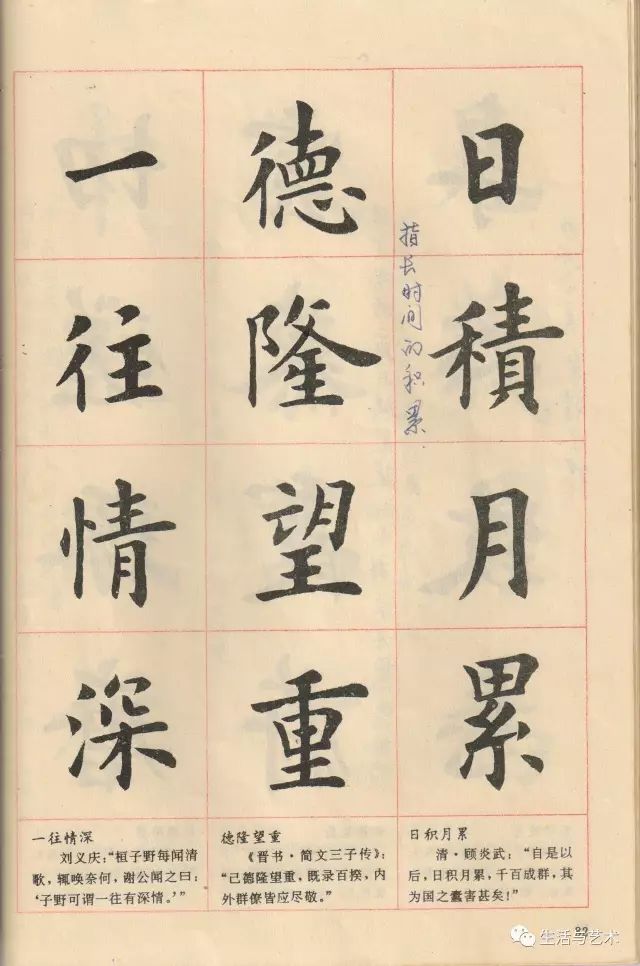 日積月累
指长时间的积累
德隆望重
一往情深
一往情深
刘义庆：“桓子野每闻清
歌，辄唤奈何，谢公闻之曰：
‘子野可谓一往有深情。’”
德隆望重
《晋书·简文三子传》：
“己德隆望重，既录百揆，内
外群僚皆应尽敬。”
日积月累
清·顾炎武：“自是以
后，日积月累，千百成群，其
为国之蠹害甚矣！”
生活与艺术